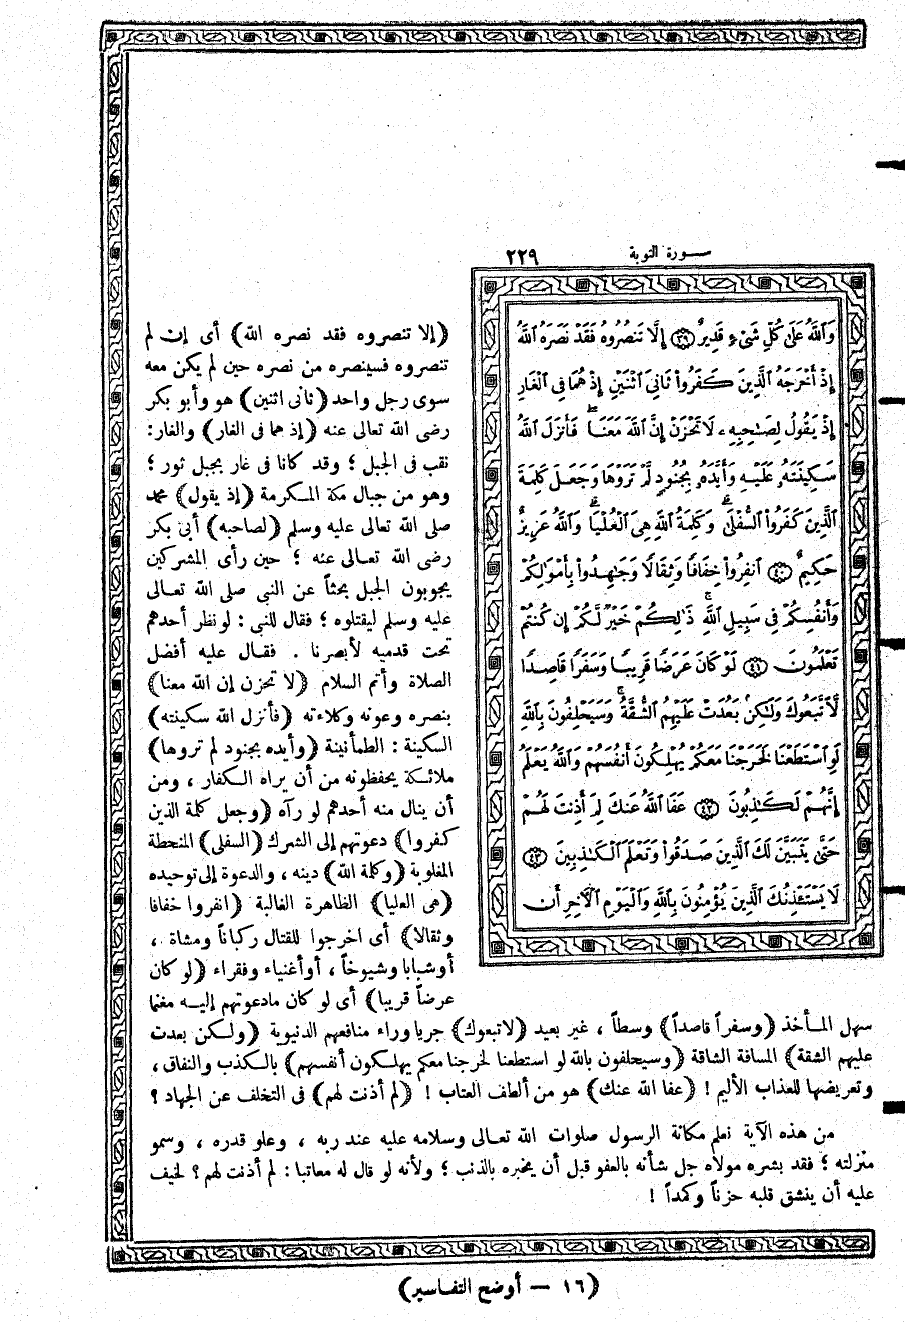 سورة التوبة ٢٢٩
وَٱللَّهُ عَلَىٰ كُلِّ شَىْءٍ قَدِيرٌ ﴿٣٩﴾ إِلَّا تَنصُرُوهُ فَقَدْ نَصَرَهُ ٱللَّهُ
إِذْ أَخْرَجَهُ ٱلَّذِينَ كَفَرُوا۟ ثَانِىَ ٱثْنَيْنِ إِذْ هُمَا فِى ٱلْغَارِ
إِذْ يَقُولُ لِصَـٰحِبِهِۦ لَا تَحْزَنْ إِنَّ ٱللَّهَ مَعَنَا ۖ فَأَنزَلَ ٱللَّهُ
سَكِينَتَهُۥ عَلَيْهِ وَأَيَّدَهُۥ بِجُنُودٍ لَّمْ تَرَوْهَا وَجَعَلَ كَلِمَةَ
ٱلَّذِينَ كَفَرُوا۟ ٱلسُّفْلَىٰ ۗ وَكَلِمَةُ ٱللَّهِ هِىَ ٱلْعُلْيَا ۗ وَٱللَّهُ عَزِيزٌ
حَكِيمٌ ﴿٤٠﴾ ٱنفِرُوا۟ خِفَافًا وَثِقَالًا وَجَـٰهِدُوا۟ بِأَمْوَٰلِكُمْ
وَأَنفُسِكُمْ فِى سَبِيلِ ٱللَّهِ ۚ ذَٰلِكُمْ خَيْرٌ لَّكُمْ إِن كُنتُمْ
تَعْلَمُونَ ﴿٤١﴾ لَوْ كَانَ عَرَضًا قَرِيبًا وَسَفَرًا قَاصِدًا
لَّٱتَّبَعُوكَ وَلَـٰكِنۢ بَعُدَتْ عَلَيْهِمُ ٱلشُّقَّةُ ۚ وَسَيَحْلِفُونَ بِٱللَّهِ
لَوِ ٱسْتَطَعْنَا لَخَرَجْنَا مَعَكُمْ يُهْلِكُونَ أَنفُسَهُمْ وَٱللَّهُ يَعْلَمُ
إِنَّهُمْ لَكَـٰذِبُونَ ﴿٤٢﴾ عَفَا ٱللَّهُ عَنكَ لِمَ أَذِنتَ لَهُمْ
حَتَّىٰ يَتَبَيَّنَ لَكَ ٱلَّذِينَ صَدَقُوا۟ وَتَعْلَمَ ٱلْكَـٰذِبِينَ ﴿٤٣﴾
لَا يَسْتَـْٔذِنُكَ ٱلَّذِينَ يُؤْمِنُونَ بِٱللَّهِ وَٱلْيَوْمِ ٱلْـَٔاخِرِ أَن
(إلا تنصروه فقد نصره الله) أى إن لم
تنصروه فسينصره من نصره حين لم يكن معه
سوى رجل واحد (ثانى اثنين) هو وأبو بكر
رضى الله تعالى عنه (إذ هما فى الغار) والغار:
نقب فى الجبل ؛ وقد كانا فى غار بجبل ثور ؛
وهو من جبال مكة المكرمة (إذ يقول) محمد
صلى الله تعالى عليه وسلم (لصاحبه) أبى بكر
رضى الله تعالى عنه ؛ حين رأى المشركين
يجوبون الجبل بحثاً عن النبى صلى الله تعالى
عليه وسلم ليقتلوه ؛ فقال للنبى : لو نظر أحدهم
تحت قدميه لأبصرنا . فقال عليه أفضل
الصلاة وأتم السلام (لا تحزن إن الله معنا)
بنصره وعونه وكلاءته (فأنزل الله سكينته)
السكينة : الطمأنينة (وأيده بجنود لم تروها)
ملائكة يحفظونه من أن يراه الكفار ، ومن
أن ينال منه أحدهم لو رآه (وجعل كلمة الذين
كفروا) دعوتهم إلى الشرك (السفلى) المنحطة
المغلوبة (وكلمة الله) دينه ، والدعوة إلى توحيده
(هى العليا) الظاهرة الغالبة (انفروا خفافا
وثقالا) أى اخرجوا للقتال ركباناً ومشاة ،
أو شبابا وشيوخاً ، أو أغنياء وفقراء (لو كان
عرضاً قريبا) أى لو كان مادعوتهم إليه مغنما
سهل المأخذ (وسفراً قاصداً) وسطاً ، غير بعيد (لاتبعوك) جريا وراء منافعهم الدنيوية (ولكن بعدت
عليهم الشقة) المسافة الشاقة (وسيحلفون بالله لو استطعنا لخرجنا معكم يهلكون أنفسهم) بالكذب والنفاق ،
وتعريضها للعذاب الأليم ! (عفا الله عنك) هو من ألطف العتاب ! (لم أذنت لهم) فى التخلف عن الجهاد ؟
من هذه الآية نعلم مكانة الرسول صلوات الله تعالى وسلامه عليه عند ربه ، وعلو قدره ، وسمو
منزلته ؛ فقد بشره مولاه جل شأنه بالعفو قبل أن يخبره بالذنب ؛ ولأنه لو قال له معاتبا : لم أذنت لهم ؟ لخيف
عليه أن ينشق قلبه حزناً وكمداً !
(١٦ — أوضح التفاسير)